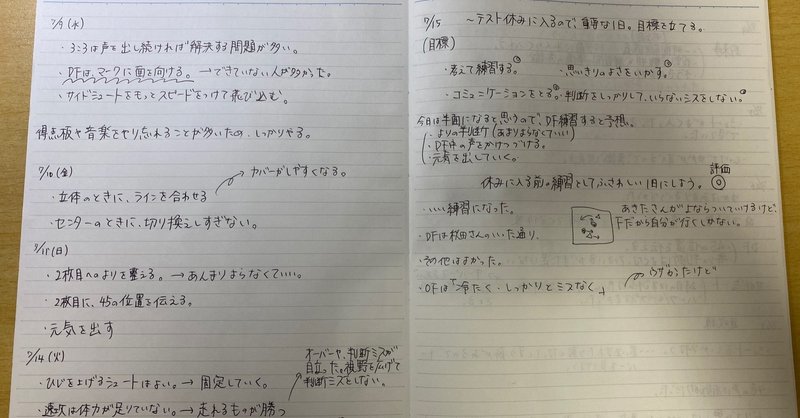 7/9(水)
・3:3は声を出し続ければ解決する問題が多い。
・DFは、マークに面を向ける。→できていない人が多かった。
・サイドシュートをもっとスピードをつけて飛び込む。
得点板や音楽をやり忘れることが多いため、しっかりやる。
7/10(金)
カバーがしやすくなる。
・立体のときに、ラインを合わせる
・センターのときに、切り換えしすぎない。
(日)
・2枚目へのよりを整える。→あんまりよらなくていい。
・2枚目に、45の位置を伝える。
・元気を出す
7/14(火)
・ひじを上げるシュートはよい。→固定していく。
オーバーや、判断ミスが
目立った。視野を広げて
判断ミスをしない。
・速攻は体力が足りていない。→走れるものが勝つ
7/15 〜テスト休みに入るので、重要な1日。目標を立てる。
(目標)
・考えて練習する。 ・思いきりのよさをいかす。
・コミュニケーションをとる。・判断をしっかりして、いらないミスをしない。
今日は半面になると思うので、DF練習すると予想。
・よりの判断(あまりよらなくていい)
・DF中の声をかけつづける。
・元気を出していく。
休みに入る前の練習としてふさわしい1日にしよう。
評価
◎
・いい練習になった。
・DFは秋田さんのいった通り、
あきたさんが よならついていけるけど、
下だから自分が行くしかない。
・その他はよかった。
・OFは「冷たく・しっかりとミスなく
かたけど